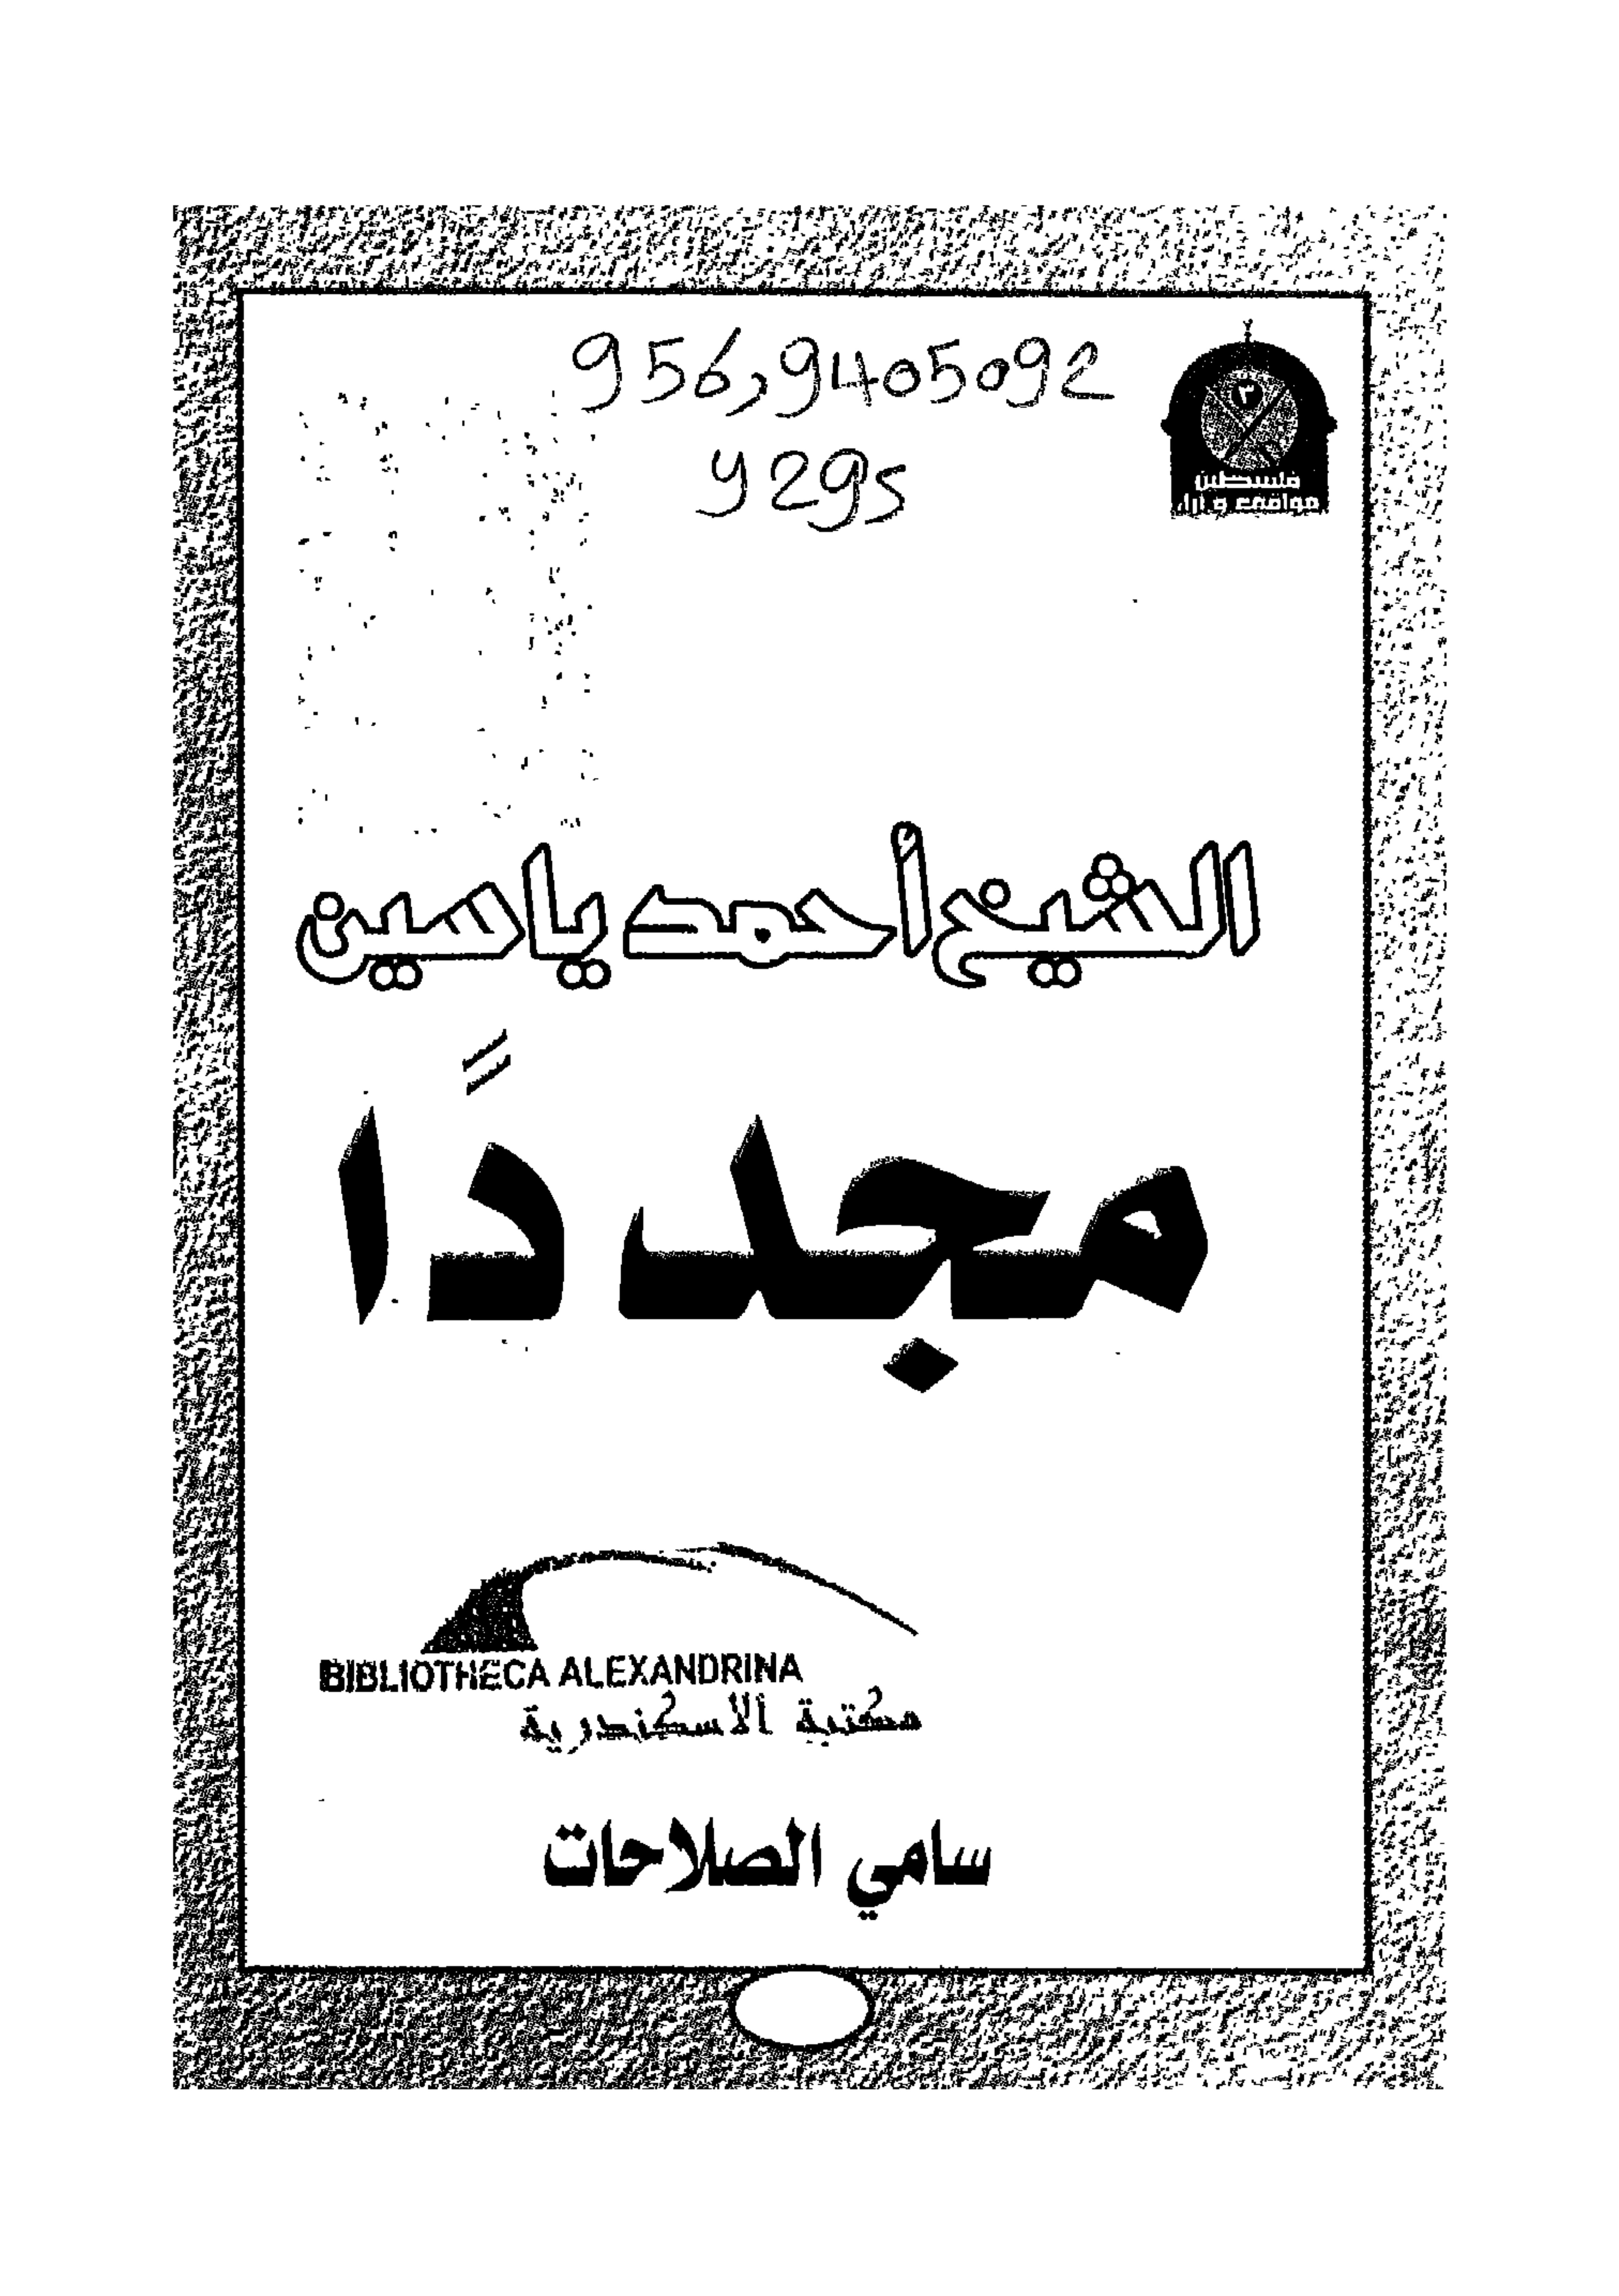 956,9405092
y29s
٣
فلسطين
مواقف و آراء
الشيخ أحمد ياسين
مجددًا
BIBLIOTHECA ALEXANDRINA
مكتبة الاسكندرية
سامي الصلاحات